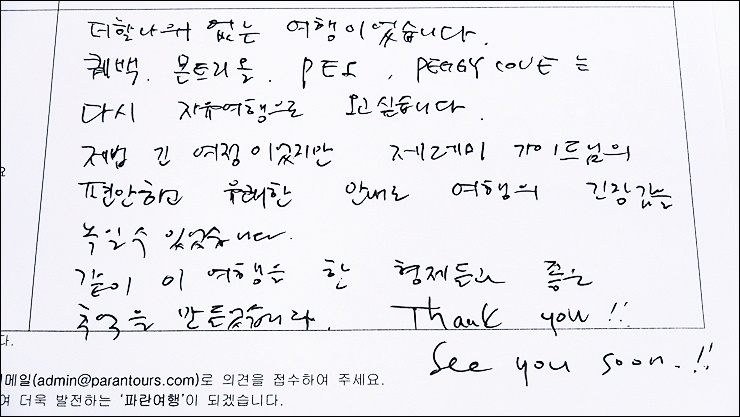 더할나위 없는 여행이었습니다.
퀘백. 몬트리올. PEI, PEGGY COVE는
다시 자유여행으로 오고싶습니다.
제법 긴 여정이었지만 제레미 가이드님의
편안하고 유쾌한 안내로 여행의 긴장감을
녹일수 있었습니다.
같이 이 여행을 한 형제들과 좋은
추억을 만들었습니다. Thank you!!
See you soon.!!
다.
메일(admin@parantours.com)로 의견을 접수하여 주세요.
여 더욱 발전하는 '파란여행'이 되겠습니다.